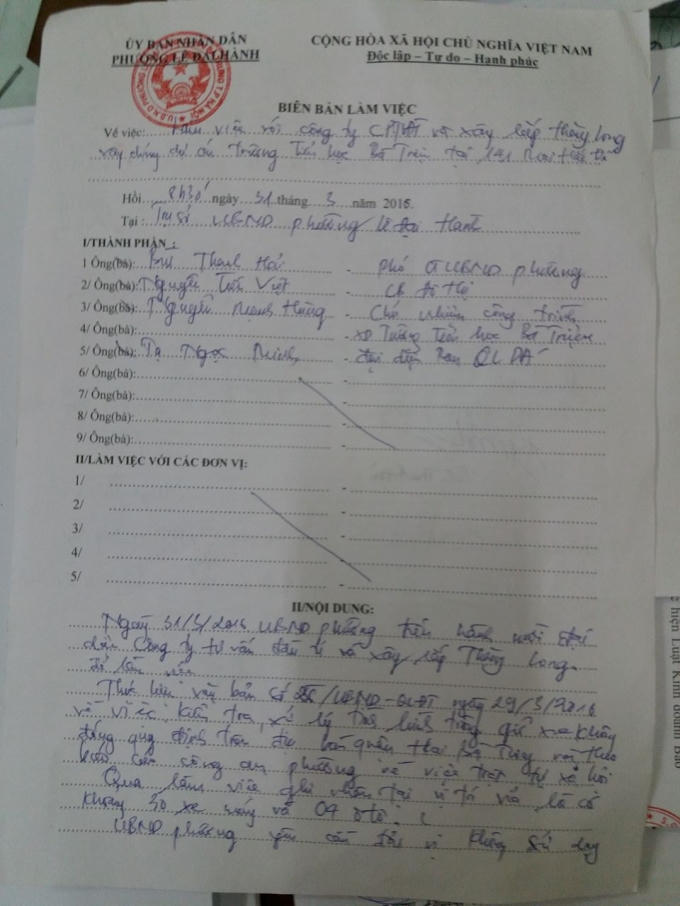 ỦY BAN NHÂN DÂN
PHƯỜNG LÊ ĐẠI HÀNH
CỘNG HÒA XÃ HỘI CHỦ NGHĨA VIỆT NAM
Độc lập – Tự do – Hạnh phúc
BIÊN BẢN LÀM VIỆC
Về việc: Làm việc với công ty CPTVĐT và xây lắp Thăng Long
xây dựng dự án Trường Tiểu học Bà Triệu tại
Hồi 8h30' ngày 31 tháng 3 năm 2016.
Tại : Trụ sở UBND phường Lê Đại Hành
I/THÀNH PHẦN :
1 Ông(bà): Bùi Thanh Hải - phó CT UBND phường
2/ Ông(bà): Nguyễn Tiến Việt - CB đô thị
3/ Ông(bà): Nguyễn Mạnh Hùng - Chủ nhiệm công trình
4/ Ông(bà): - XD Trường Tiểu học Bà Triệu
5/ Ông(bà): Tạ Ngọc Minh - đại diện Ban QLDA
6/ Ông(bà):
7/ Ông(bà):
8/ Ông(bà):
9/ Ông(bà):
II/LÀM VIỆC VỚI CÁC ĐƠN VỊ:
1/
2/
3/
4/
5/
II/NỘI DUNG:
Ngày 31/3/2016 UBND phường tiến hành mời đại
diện Công ty tư vấn đầu tư và xây lắp Thăng Long
để làm việc
Thực hiện văn bản số /UBND-QLĐT ngày 29/3/2016
về việc kiểm tra, xử lý tình hình trông giữ xe không
đúng quy định trên địa bàn quận Hai Bà Trưng và theo
báo cáo công an phường về việc trật tự xã hội
Qua làm việc ghi nhận tại vị trí là có
khoảng 30 xe máy và 04 ô tô.
UBND phường yêu cầu đơn vị không sử dụng
hiện Luật Kinh doanh Bảo